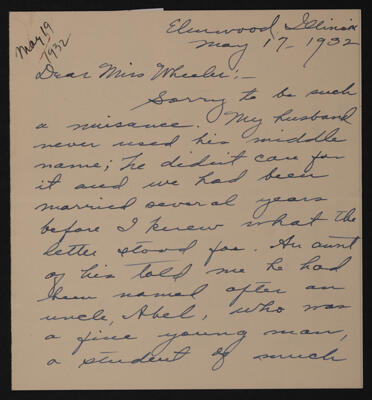 May 19
1932
Elmwood, Illinois
May 17 - 1932
Dear Miss Wheeler; -
Sorry to be such
a nuisance. My husband
never used his middle
name; he didn't care for
it and we had been
married several years
before I knew what the
letter stood for. An aunt
of his told me he had
been named after an
uncle, Abel, who was
a fine young man,
a student of much